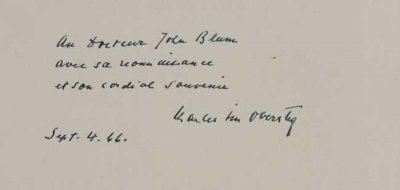 Au Docteur John Blum
avec sa reconnaissance
et son cordial souvenir
Charles Im Obersteg
Sept. 4. 66.